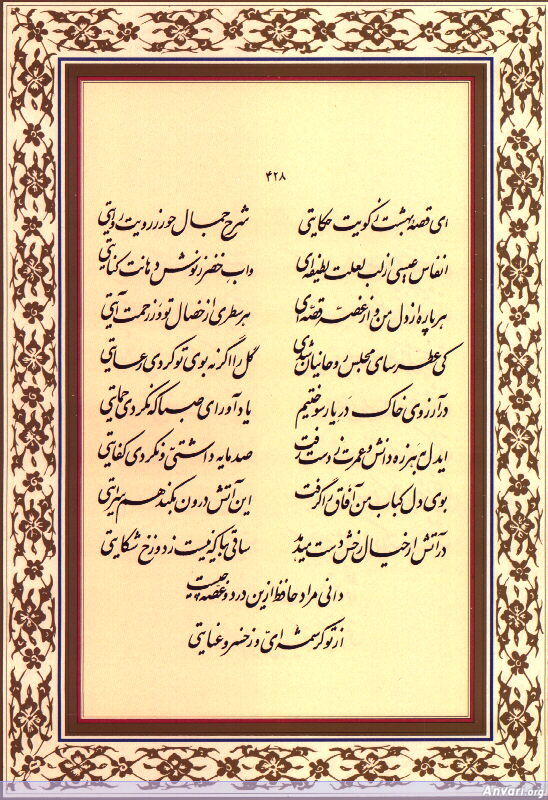 ۴۲۸
ای قصه بهشت ز کویت حکایتی شرح جمال حور ز رویت روایتی
انفاس عیسی از لب لعلت لطیفه‌ای و آب خضر ز نوش دهانت کنایتی
هر پاره از دل من و از غصه قصه‌ای هر سطری از خصال تو وز رحمت آیتی
کی عطرسای مجلس روحانیان شدی گل را اگر نه بوی تو کردی رعایتی
در آرزوی خاک در یار سوختیم یاد آور ای صبا که نکردی حمایتی
ای دل به هرزه دانش و عمرت ز دست رفت صد مایه داشتی و نکردی کفایتی
بوی دل کباب من آفاق را گرفت این آتش درون بکند هم سرایتی
در آتش ار خیال رخش دست میدهد ساقی بیا که نیست ز دوزخ شکایتی
دانی مراد حافظ ازین درد و غصه چیست
از تو کرشمه‌ای و ز خسرو عنایتی
Anvari.org